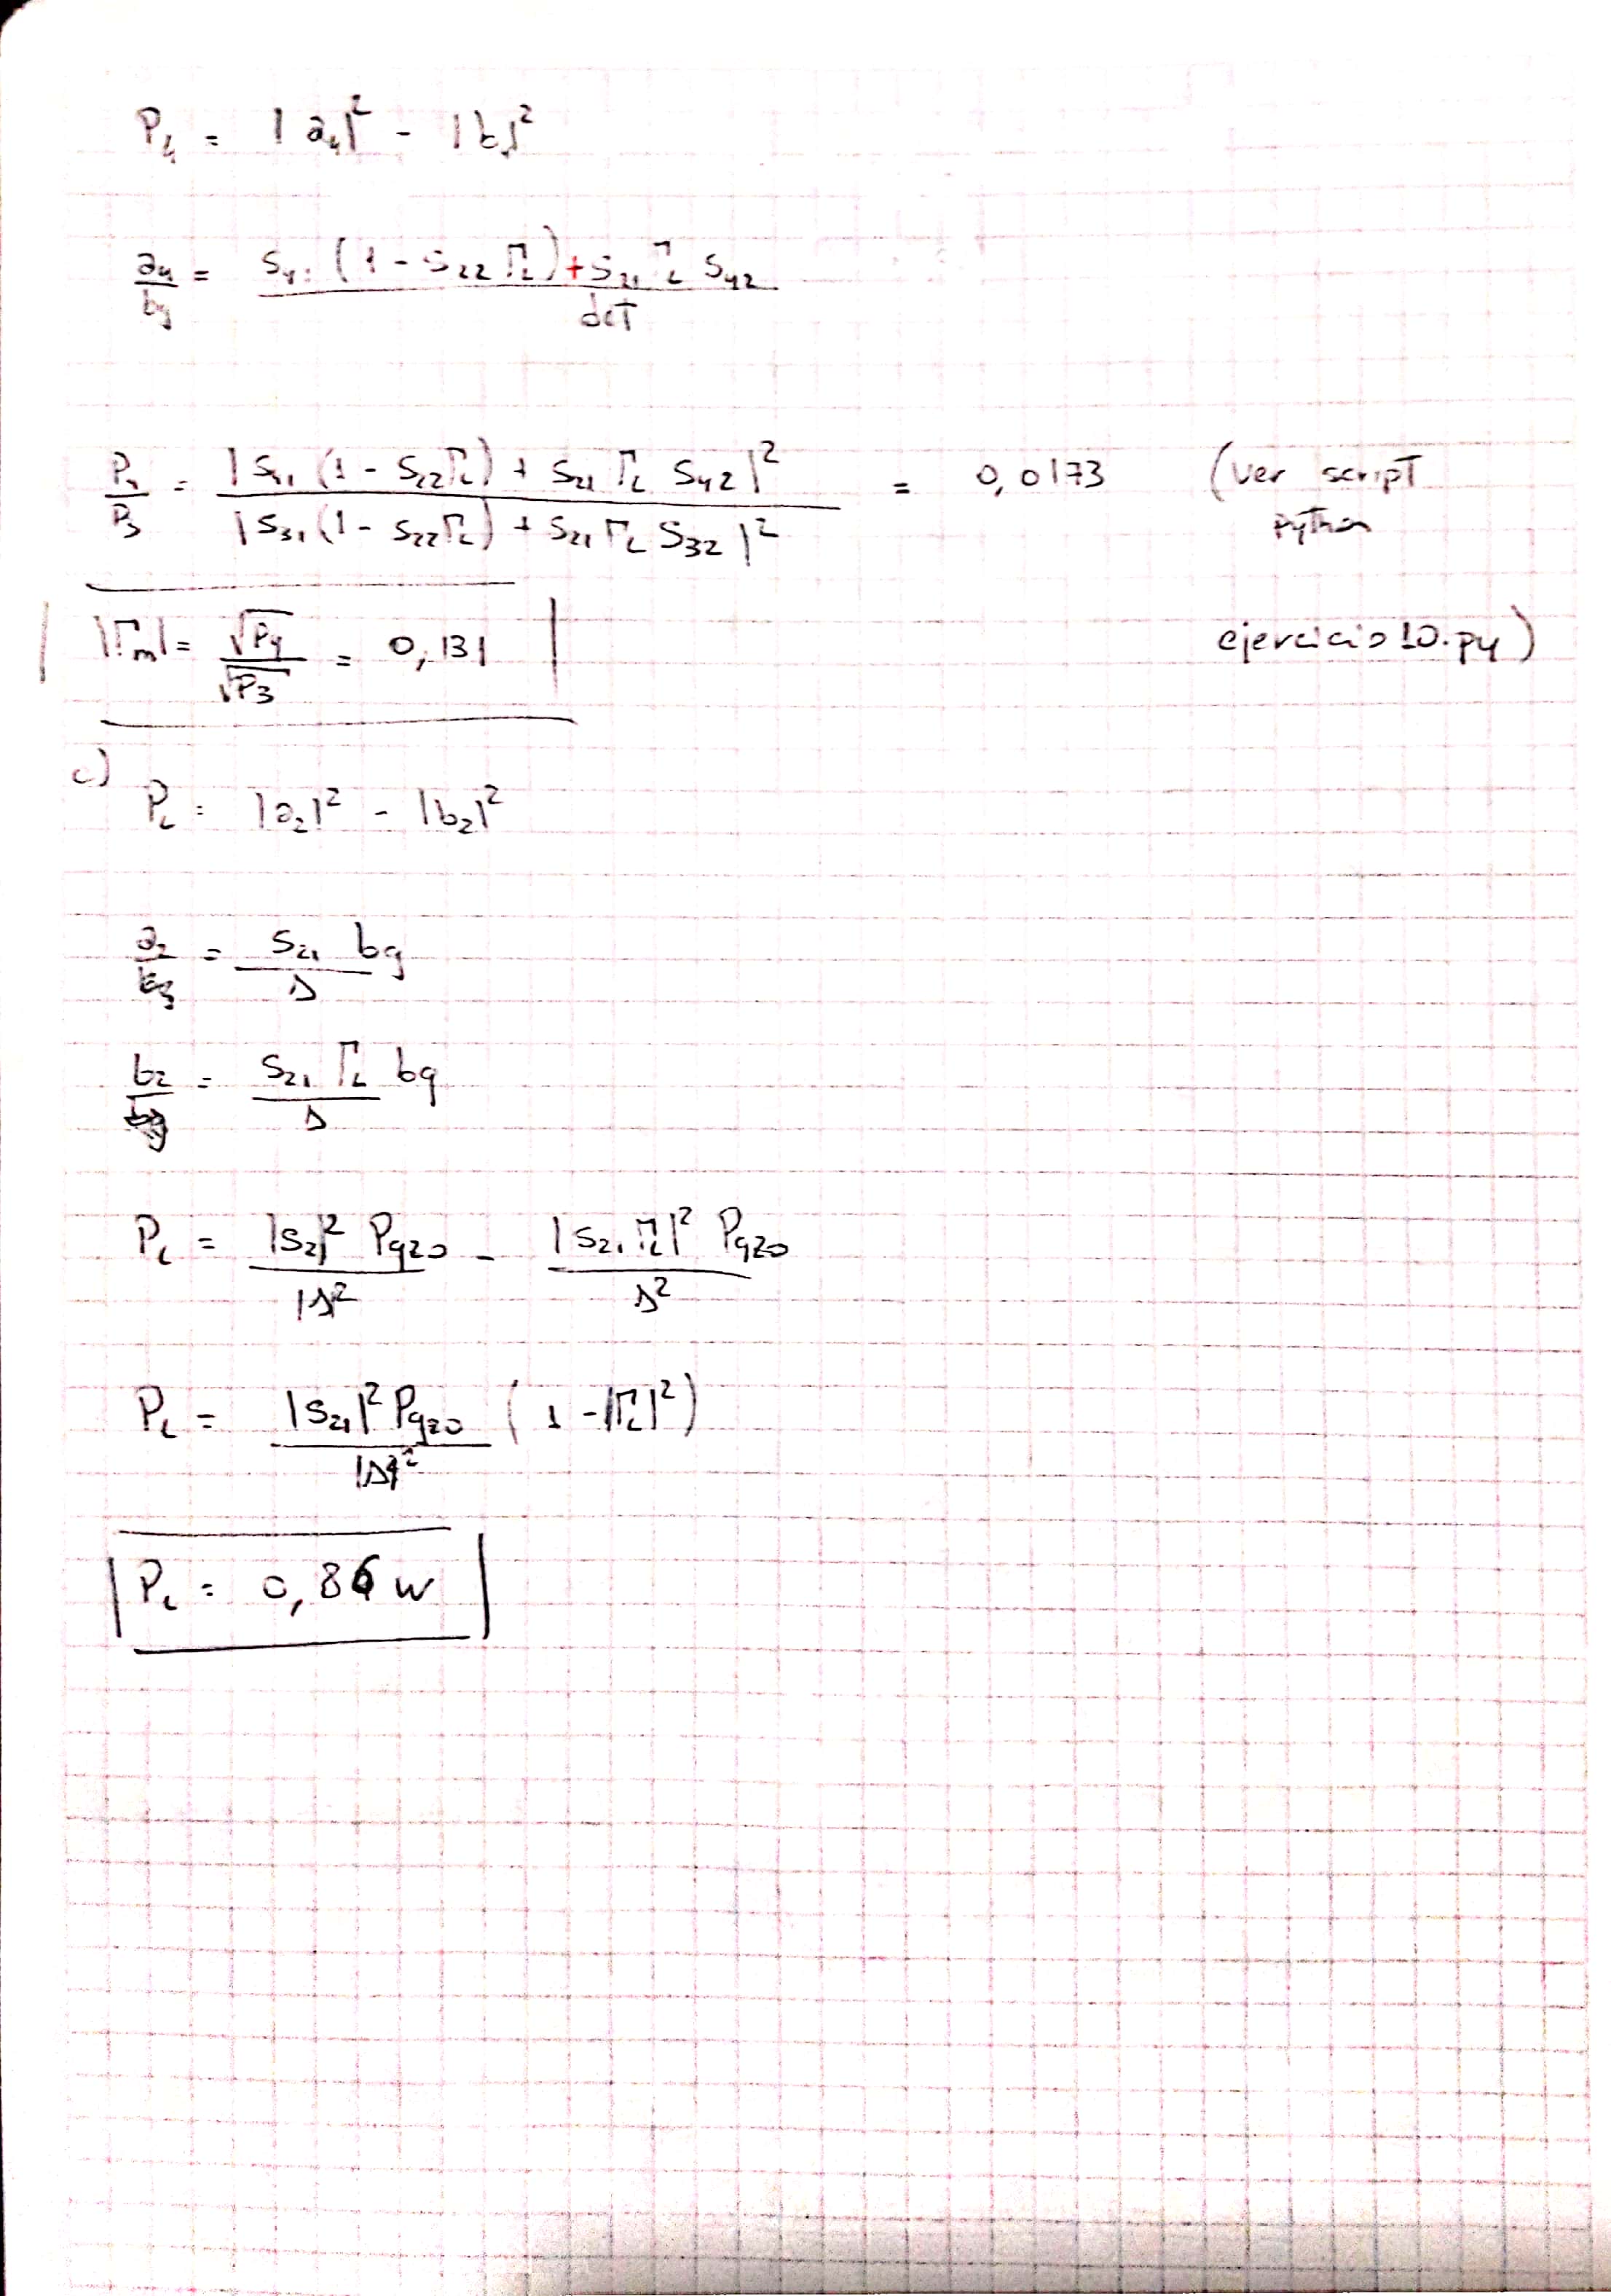 P₄ = |a₄|² - |b₄|²
a₄/bg = (S₄₁ (1 - S₂₂ Γ_L) + S₂₁ Γ_L S₄₂) / det
P₄/P₃ = |S₄₁ (1 - S₂₂Γ_L) + S₂₁ Γ_L S₄₂|² / |S₃₁ (1 - S₂₂Γ_L) + S₂₁ Γ_L S₃₂|² = 0,0173 (ver script
python
|Γm| = √P₄ / √P₃ = 0,131 ejercicio10.py)
c)
P_L = |a₂|² - |b₂|²
a₂/bg = S₂₁ bg / Δ
b₂/bg = S₂₁ Γ_L bg / Δ
P_L = |S₂₁|² Pgzo / |Δ|² - |S₂₁ Γ_L|² Pgzo / Δ²
P_L = |S₂₁|² Pgzo / |Δ|² (1 - |Γ_L|²)
P_L = 0,86 W